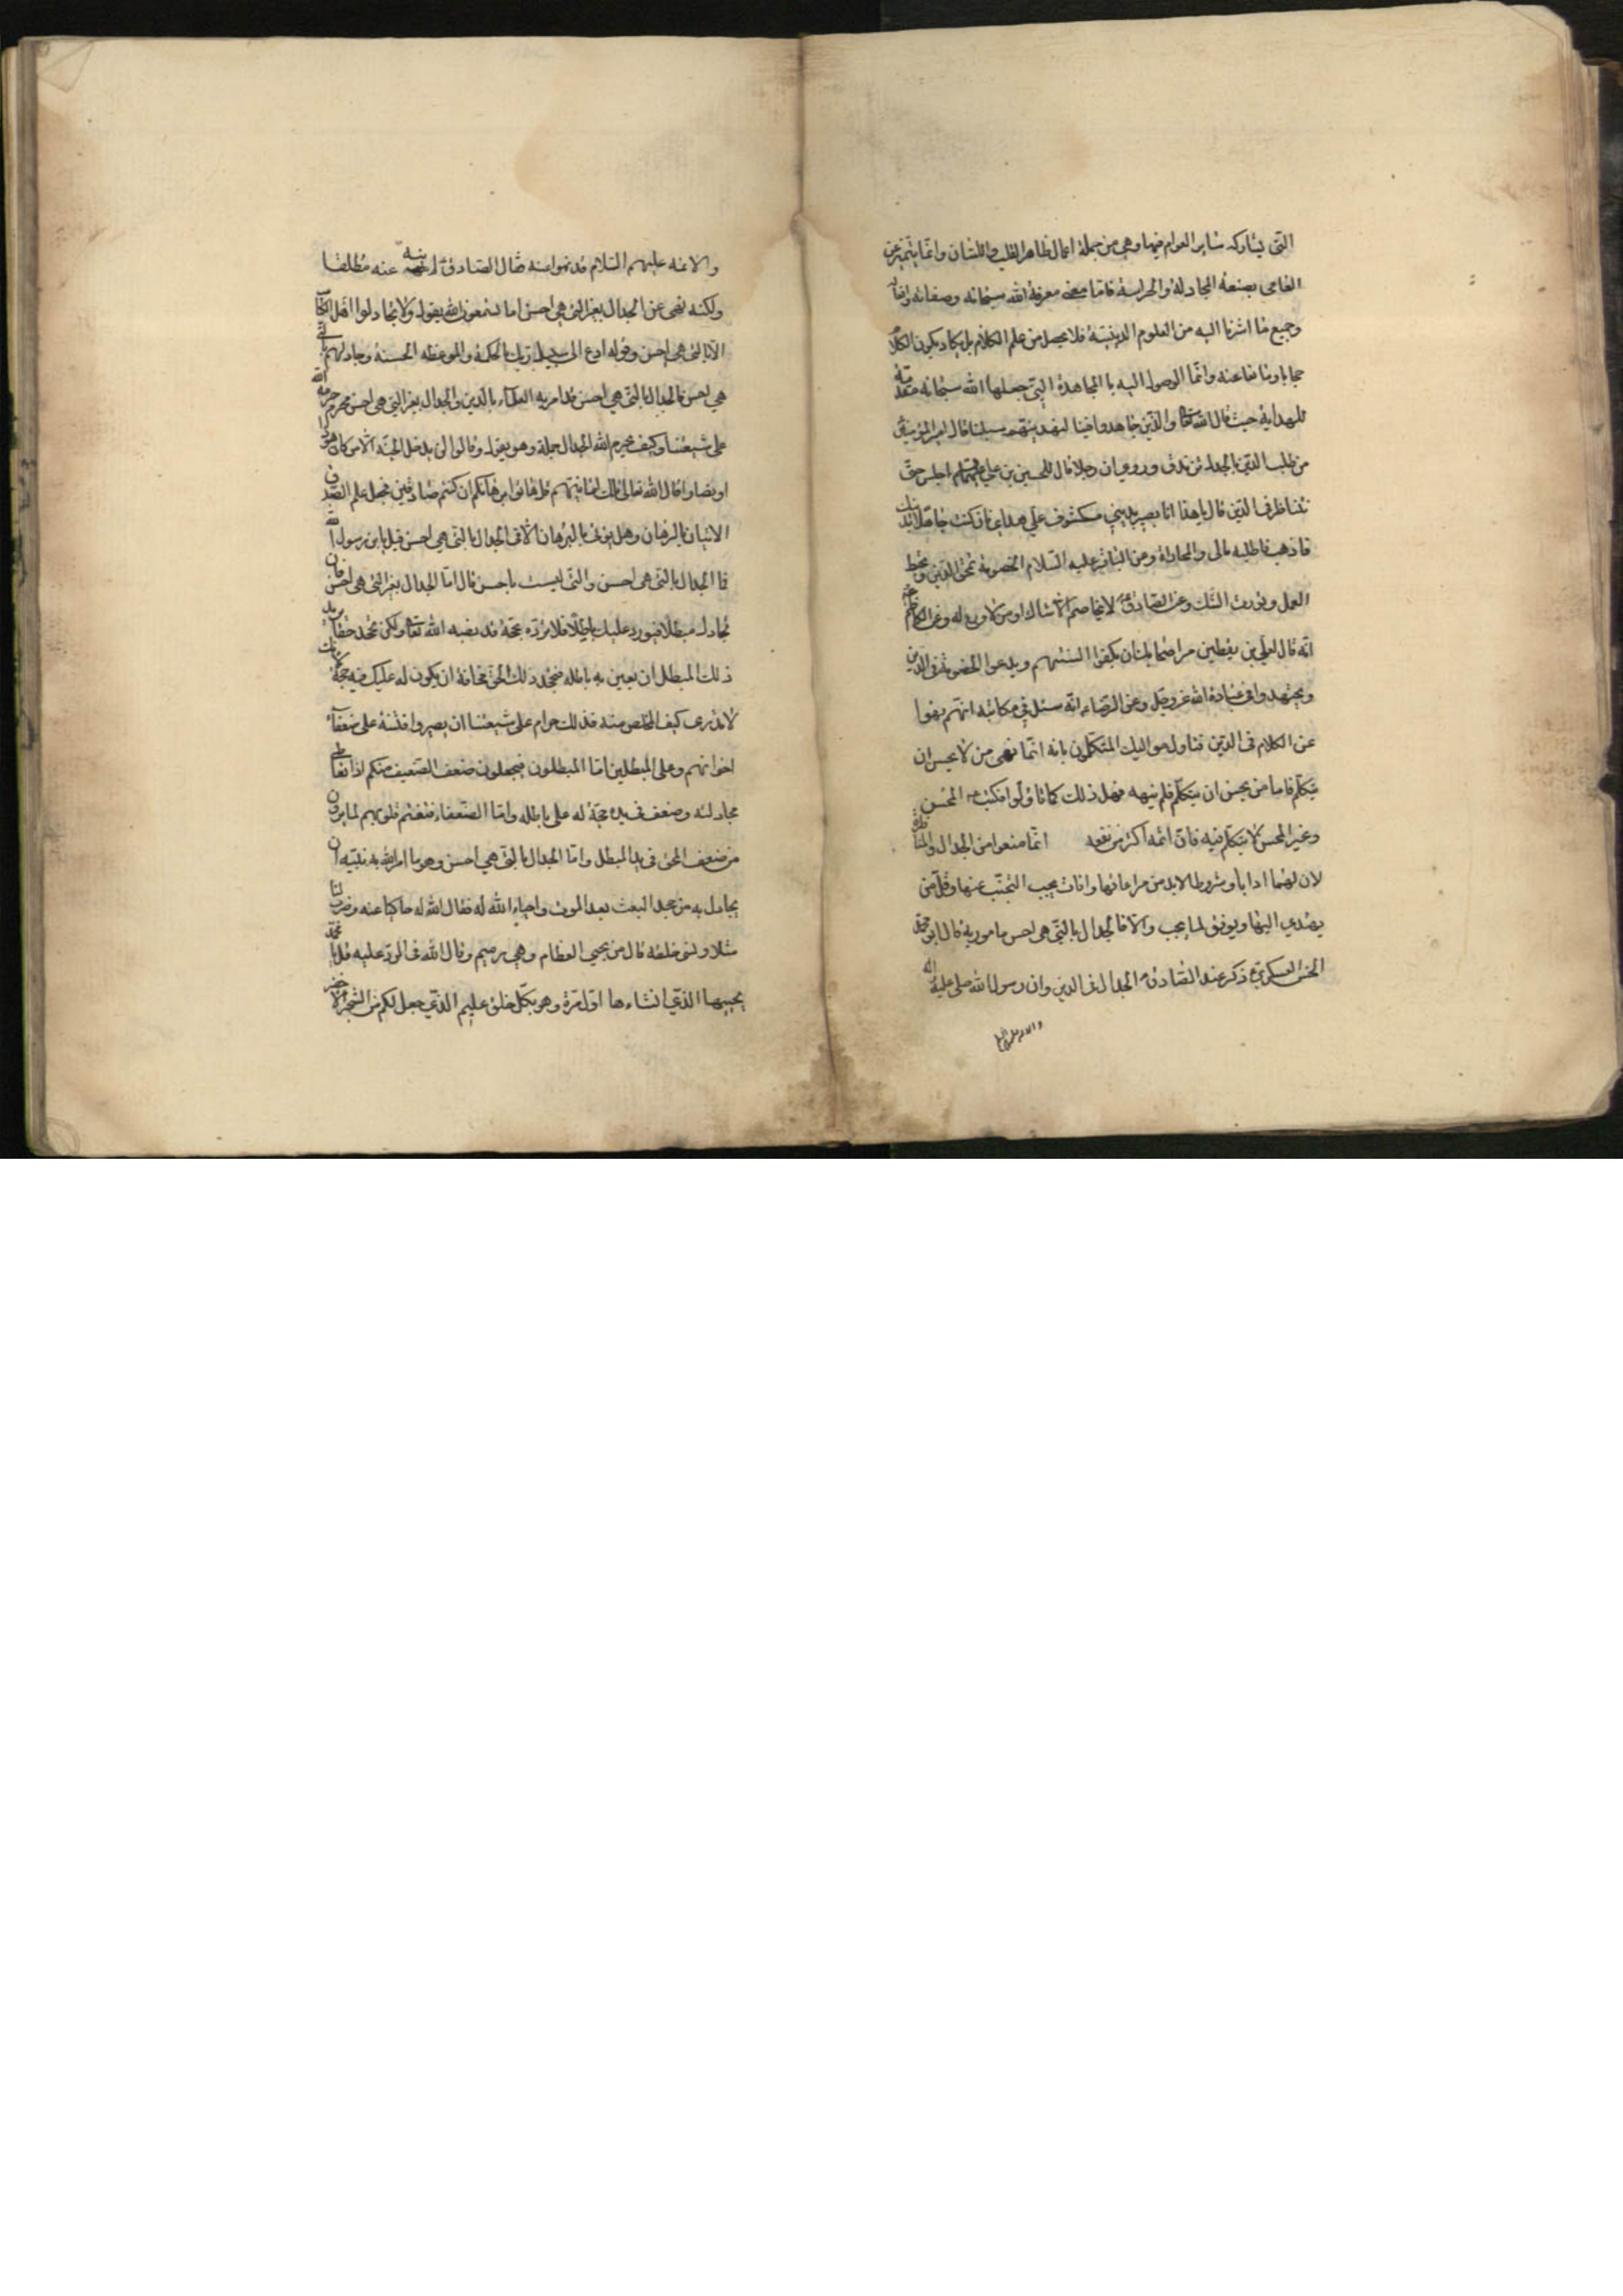 التى يشاركه ساير العوام فيها وهي من جملة اعمال ظاهر القلب واللسان وانما يتميز عن
العامى بصنعة المجادلة والحراسة فاما معنى معرفة الله سبحانه وصفاته وافعاله
وجميع ما اشرنا اليه من العلوم الدينية فلا يحصل من علم الكلام بل يكاد يكون الكلام
حجابا ومانعا عنه وانما الوصول اليه بالمجاهدة التى جعلها الله سبحانه مقدمة
للهداية حيث قال الله تعالى والذين جاهدوا فينا لنهدينهم سبلنا قال امير المؤمنين
من طلب الدين بالجدل تزندق وروي ان رجلا قال للحسين بن علي عليهما السلام اجلس حتى
نتناظر في الدين قال يا هذا انا بصير بديني مكشوف علي هداي فان كنت جاهلا بدينك
فاذهب فاطلبه مالى وللمماراة وعن الباقر عليه السلام الخصومة تمحق الدين وتحبط
العمل وتورث الشك وعن الصادق ع لا يخاصم الا شاك او من لا ورع له وعن الكاظم
انه قال لعلي بن يقطين مر اصحابك ان يكفوا السنتهم ويدعوا الخصومة في الدين
ويجتهدوا في عبادة الله عز وجل وعن الرضا ع انه سئل في مكاتبة انهم نهوا
عن الكلام في الدين فتاول مواليك المتكلمون بانه انما نهى من لا يحسن ان
يتكلم فاما من يحسن ان يتكلم فلم ينهه فهل ذلك كما تاولوا فكتب ع المحسن
وغير المحسن لا يتكلم فيه فان اثمه اكثر من نفعه انما منعوا من الجدال والمناظرة
لان لهما ادابا وشروطا لابد من مراعاتها وافات يجب التجنب عنها وقل من
يهتدي اليها ويوفق لما يجب والا فالجدال بالتى هى احسن مامور به قال ابو محمد
الحسن العسكري ع ذكر عند الصادق ع الجدال فى الدين وان رسول الله صلى عليه واله
والائمه عليهم السلام قد نهوا عنه فقال الصادق ع لم ينه عنه مطلقا
ولكنه نهى عن الجدال بغير التى هي احسن اما تسمعون الله يقول ولا تجادلوا اهل الكتاب
الا بالتى هى احسن وقوله ادع الى سبيل ربك بالحكمة والموعظه الحسنة وجادلهم بالتى
هي احسن فالجدال بالتى هي احسن قد امر به العلماء بالدين والجدال بغير التى هى احسن محرم حرمه الله
على شيعتنا وكيف يحرم الله الجدال جملة وهو يقول وقالوا لن يدخل الجنة الا من كان هودا
او نصارا قال الله تعالى تلك امانيهم قل هاتوا برهانكم ان كنتم صادقين فجعل علم الصدق
الاتيان بالبرهان وهل يؤتى بالبرهان الا فى الجدال بالتى هي احسن قيل يابن رسول الله
فما الجدال بالتى هى احسن والتى ليست باحسن قال اما الجدال بغير التى هى احسن فان
تجادل مبطلا فيورد عليك باطلا فلا ترده بحجة قد نصبه الله تعالى ولكن تجحد حقا يريد
ذلك المبطل ان يعين به باطله فتجحد ذلك الحق مخافة ان يكون له عليك فيه حجة لانك
لا تدرى كيف المخلص منه فذلك حرام على شيعتنا ان يصيروا فتنة على ضعفاء
اخوانهم وعلى المبطلين اما المبطلون فيجعلون ضعف الضعيف منكم اذا تعاطى
مجادلته وضعف في يده حجة له على باطله واما الضعفاء فتغتم قلوبهم لما يرون
من ضعف المحق فى يد المبطل واما الجدال بالتى هي احسن وهو ما امر الله به نبيه ان
يجادل به من جحد البعث بعد الموت واحياء الله له فقال الله له حاكيا عنه وضرب لنا
مثلا ونسى خلقه قال من يحيي العظام وهي رميم وقال الله في الرد عليه قل يا محمد
يحييها الذي انشاءها اول مرة وهو بكل خلق عليم الذي جعل لكم من الشجر الاخضر